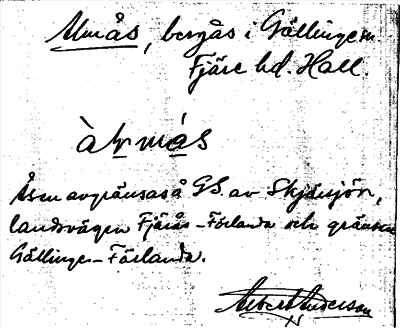 Almås, bergås i Gällinge sn.
Fjäre hd. Hall.
àḷmás
Åsen avgränsas å GS. av Skjärsjön,
landsvägen Fjärås-Förlanda och gränsen
Gällinge-Förlanda.
Albert Anderson